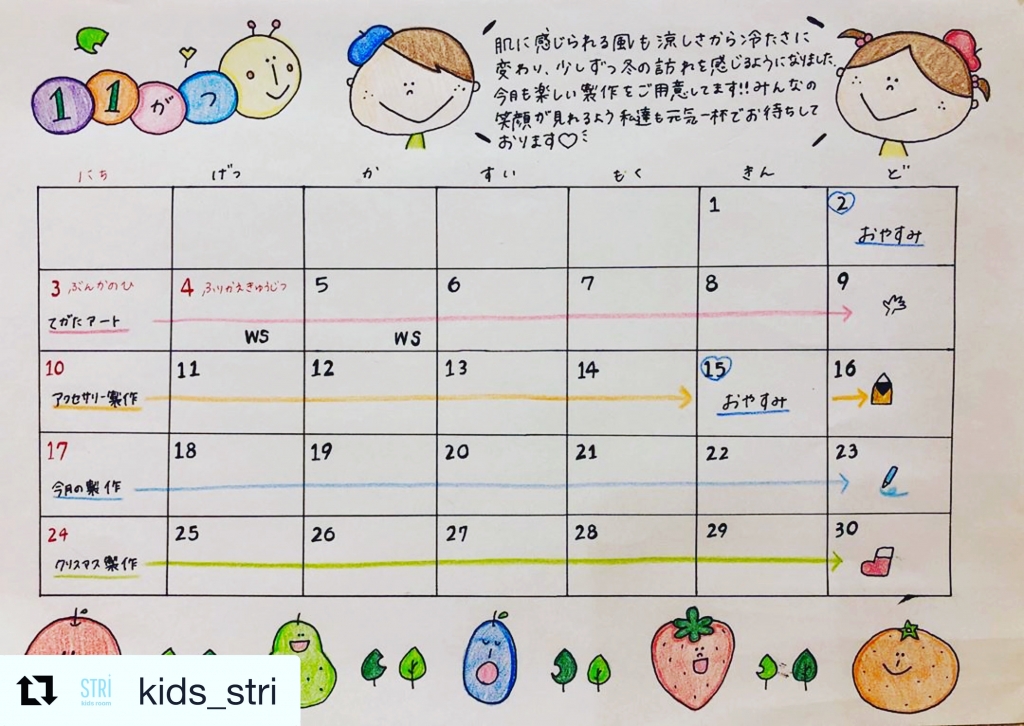 11がつ
肌に感じられる風も涼しさから冷たさに
変わり、少しずつ冬の訪れを感じるようになりました。
今月も楽しい製作をご用意してます!!みんなの
笑顔が見れるよう私達も元気一杯でお待ちして
おります♡
にち げつ か すい もく きん ど
1 2
おやすみ
3 ぶんかのひ 4 ふりかえきゅうじつ 5 6 7 8 9
てがたアート
WS WS
10 11 12 13 14 15 16
アクセサリー製作 おやすみ
17 18 19 20 21 22 23
今月の製作
24 25 26 27 28 29 30
クリスマス製作
STRi
kids room
kids_stri